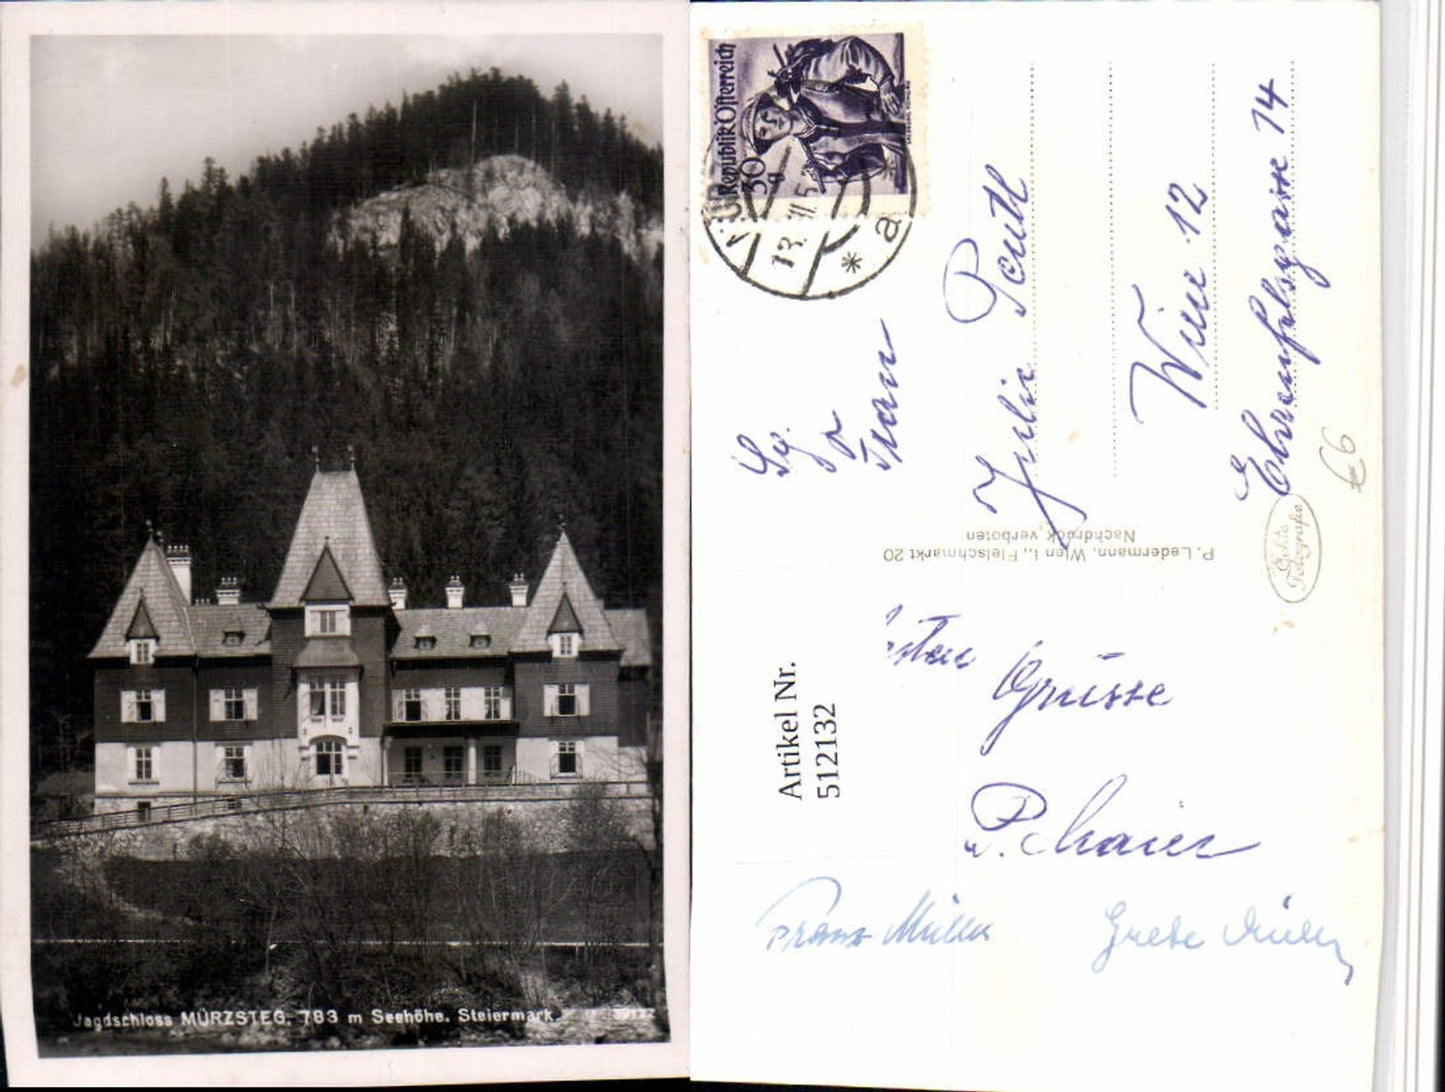 Jagdschloss MÜRZSTEG. 783 m Seehöhe. Steiermark.
Republik Österreich
30
g
13. VII 5
* a
Julie
Wien 12
Ehrenfelsgasse 14
€6
P. Ledermann, Wien I., Fleischmarkt 20
Nachdruck verboten
Echte
Fotografie
Artikel Nr.
512132
Grüsse
Franz Müller
Grete Müller